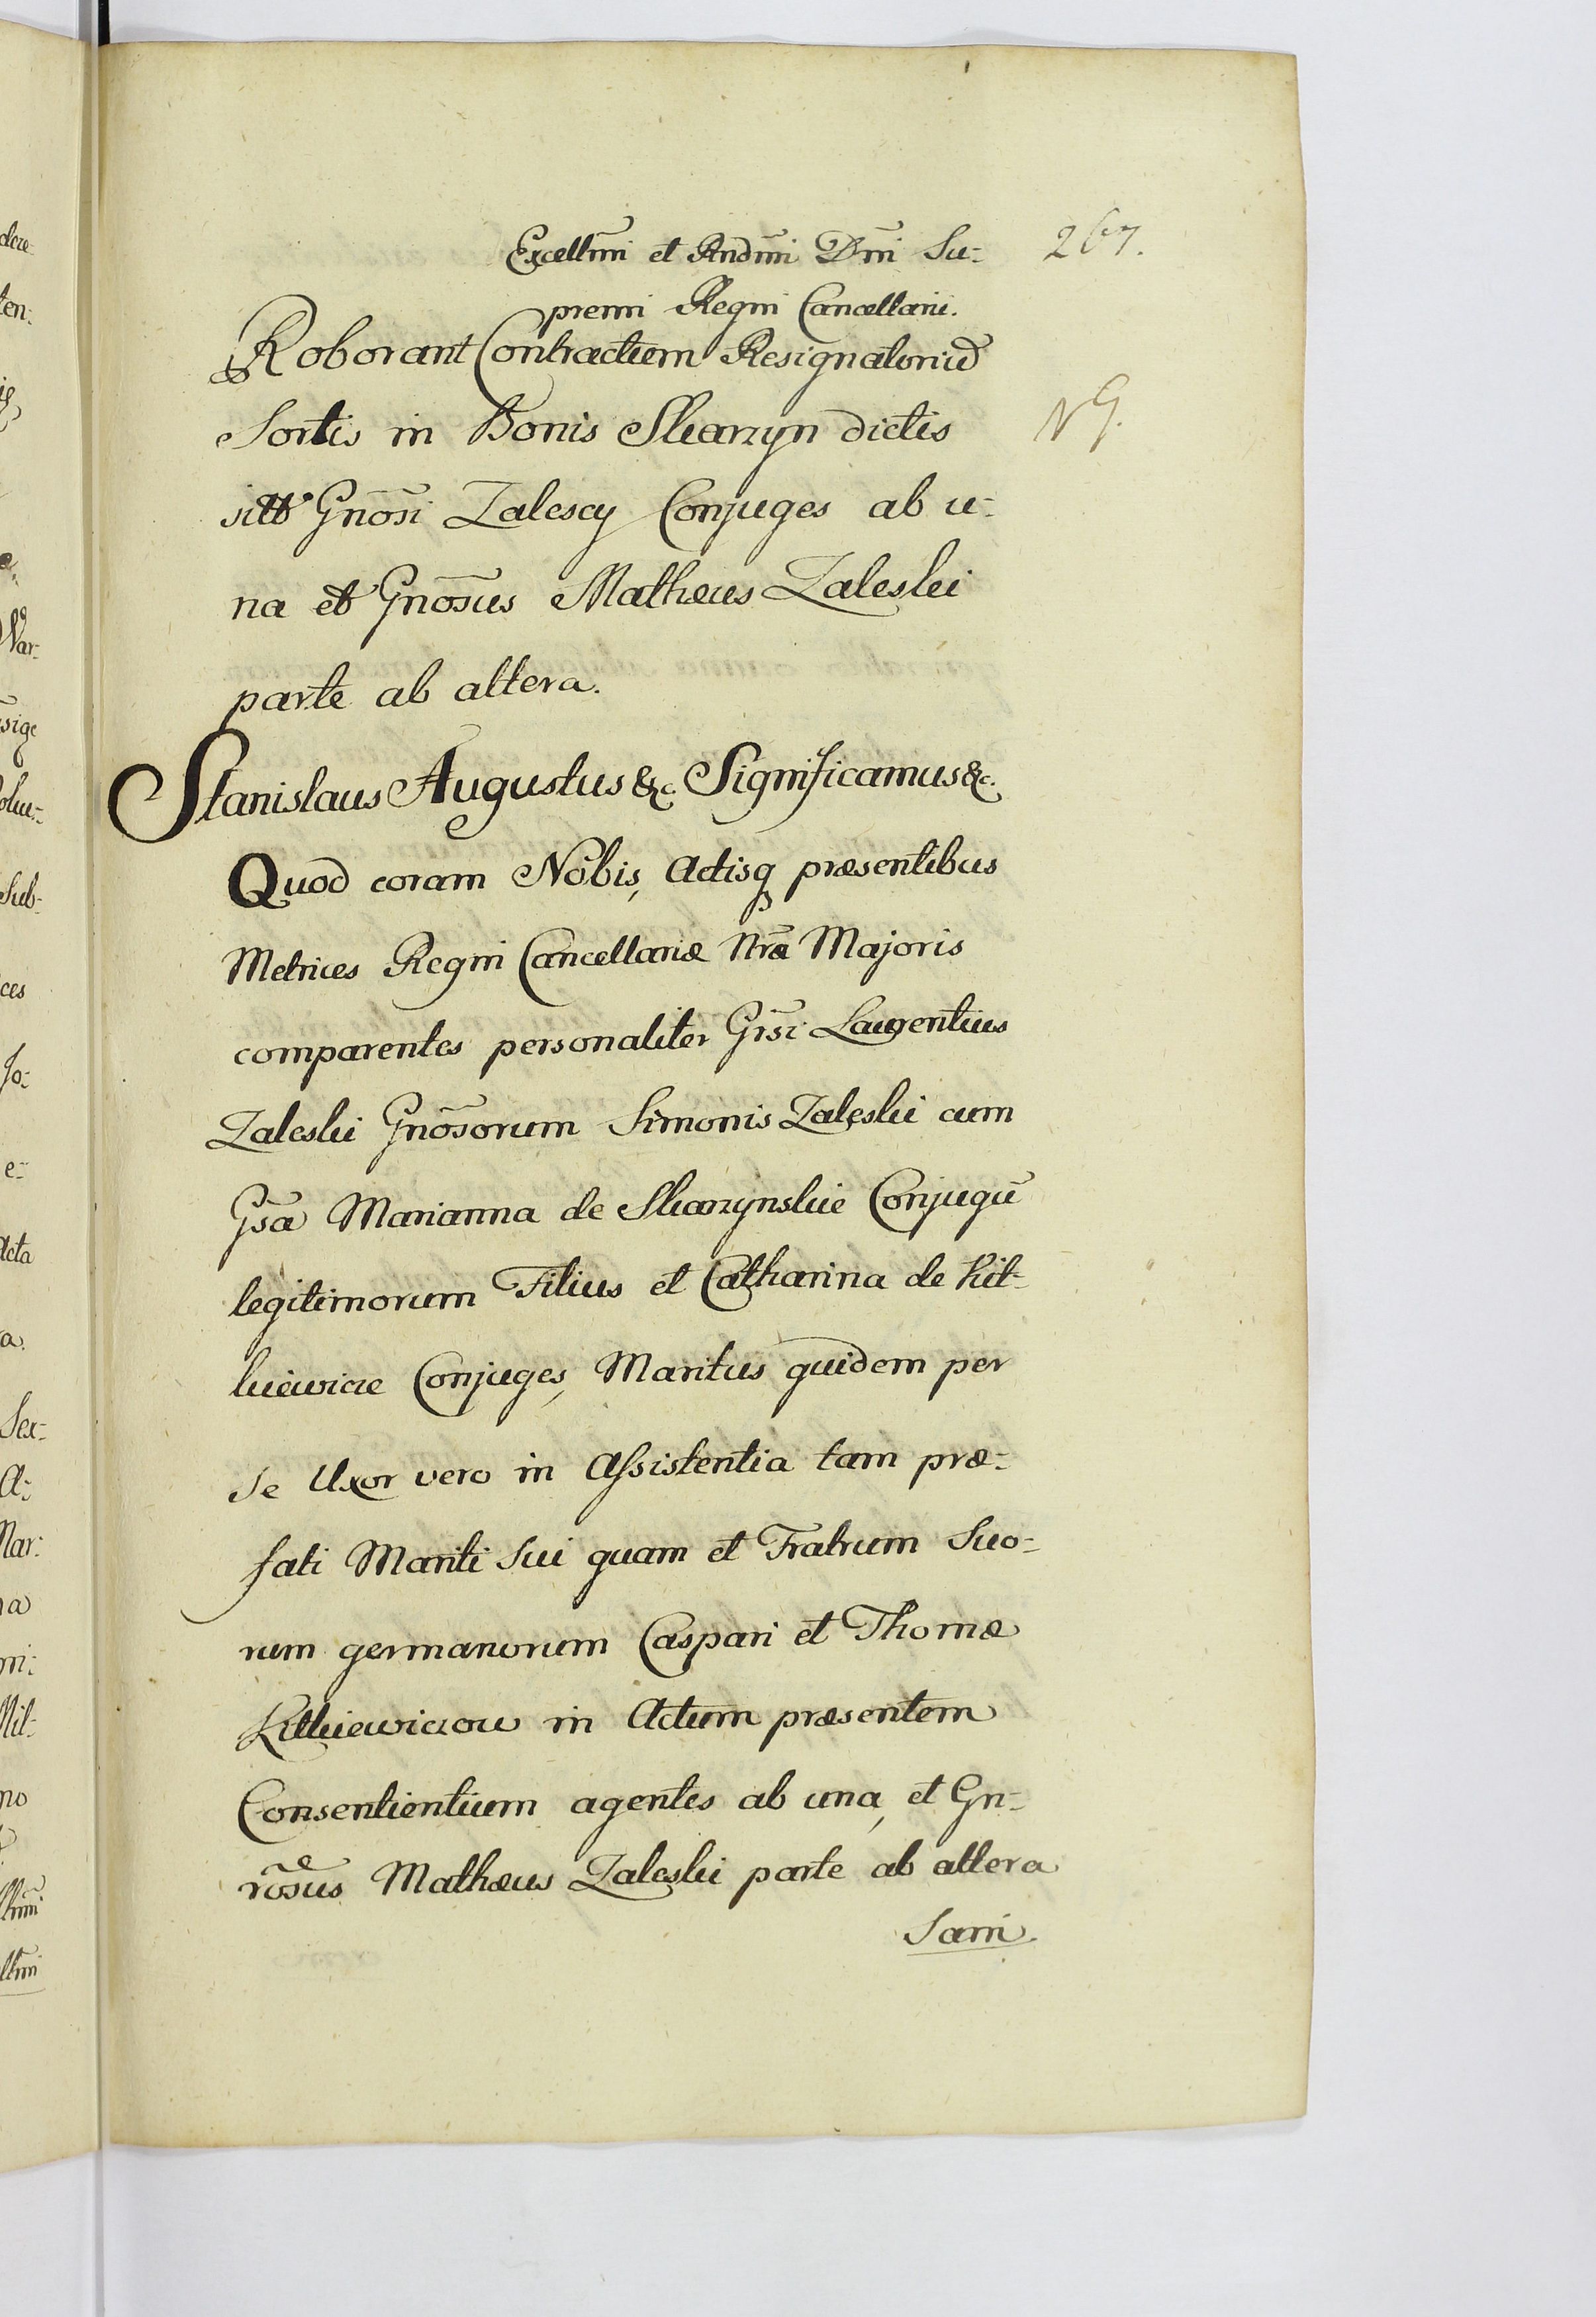 Excellm̃i et Rndm̃i Dm̃i Su-
267.
premi Regni Cancellarii.
Roborant Contractum Resignatoriũ
Sortis in Bonis Skarzyn dictis
sitt Gnõsi Zalescy Conjuges ab u-
na et Gnõsus Mathæus Zaleski
parte ab altera.
Stanislaus Augustus &c. Significamus &c.
Quod coram Nobis, Actisq præsentibus
Metrices Regni Cancellariæ Nr̃æ Majoris
comparentes personaliter Gr̃si Laurentius
Zaleski Gnõsorum Simonis Zaleski cum
Gs̃a Marianna de Skarzynskie Conjugũ
legitimorum Filius et Catharina de Kit-
kiewicze Conjuges, Maritus quidem per
se Uxor vero in Assistentia tam præ-
fati Mariti sui quam et Fratrum Suo-
rum germanorum Caspari et Thomæ
Kitkiewiczow in Actum præsentem
Consentientium agentes ab una, et Gn-
rõsus Mathæus Zaleski parte ab altera
Sani